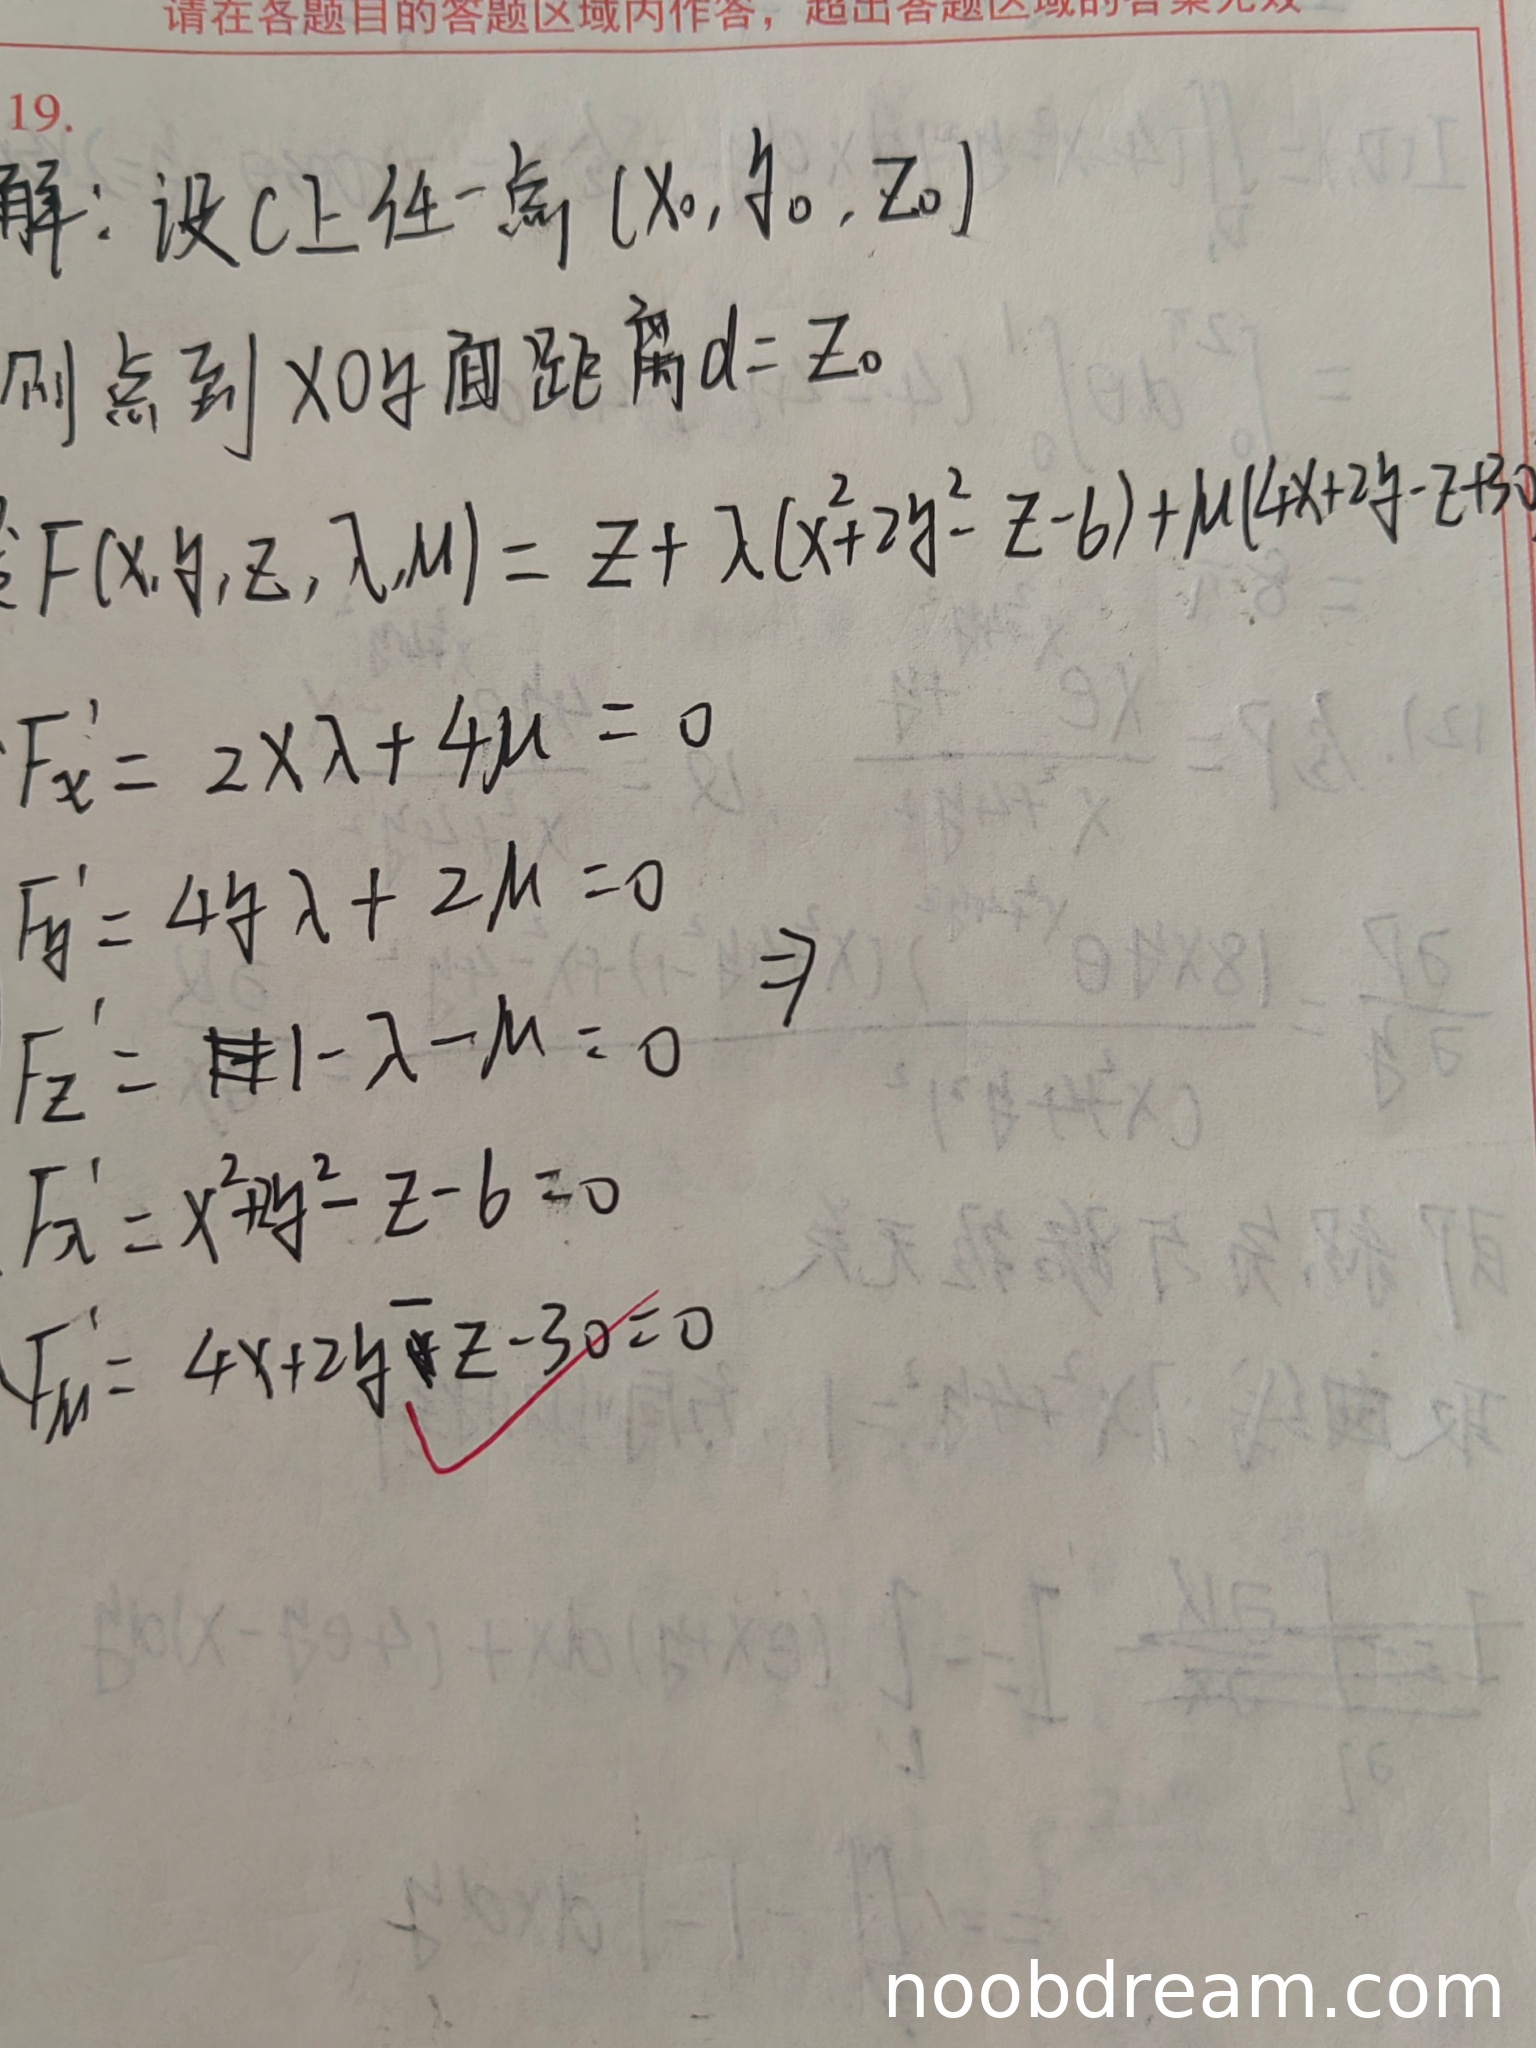 请在各题目的答题区域内作答，超出答题区域的答案无效
19.
解：设C上任一点(x₀,y₀,z₀)
则点到xOy面距离d=z₀
F(x,y,z,λ,μ)=z+λ(x²+2y²-z-6)+μ(4x+2y-z+30
F'x=2xλ+4μ=0
F'y=4yλ+2μ=0
⇒
F'z=1-λ-μ=0
F'λ=x²+2y²-z-6=0
F'μ=4x+2y-z-30=0
noobdream.com